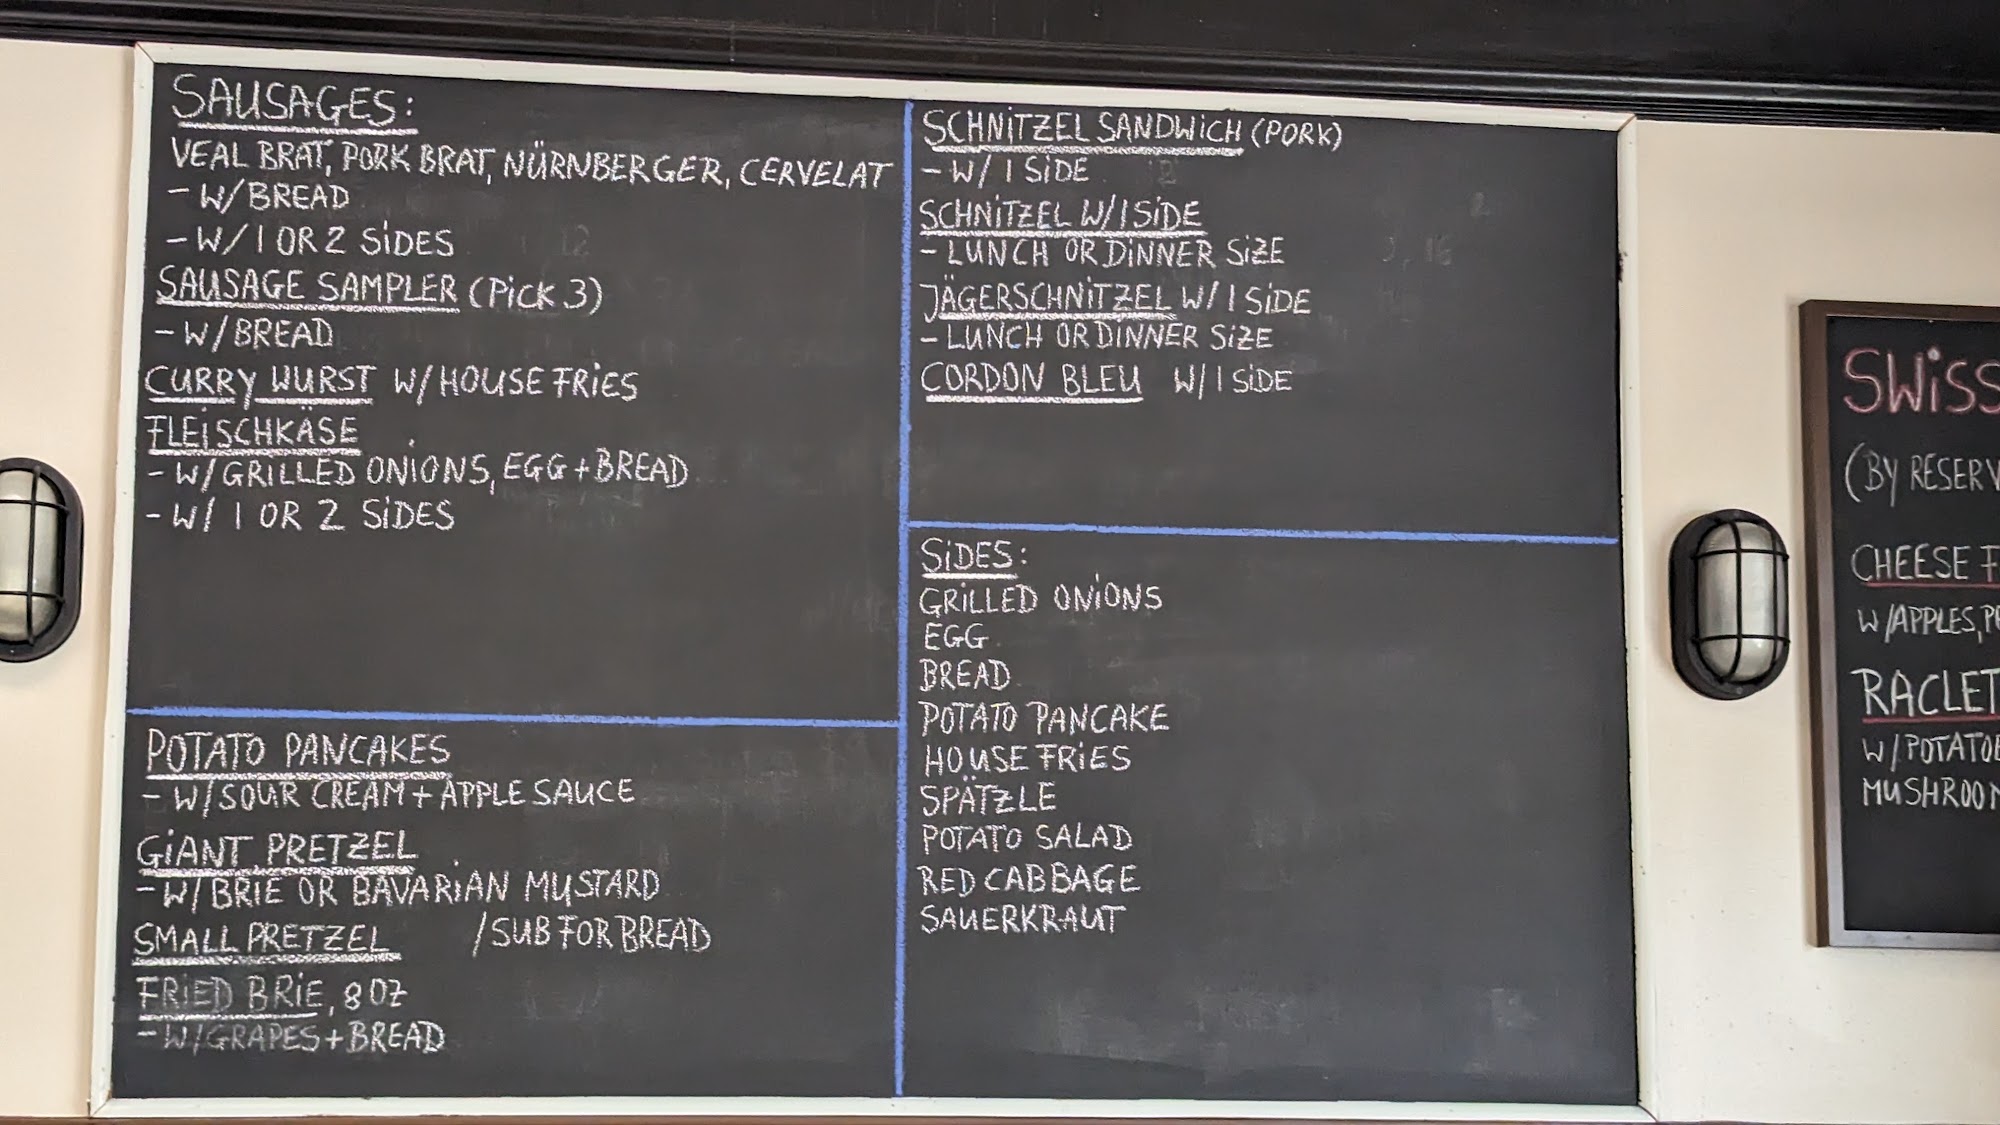 SAUSAGES:
VEAL BRAT, PORK BRAT, NÜRNBERGER, CERVELAT
- W/BREAD
- W/1 OR 2 SIDES
SAUSAGE SAMPLER (PICK 3)
- W/BREAD
CURRY WURST W/HOUSE FRIES
FLEISCHKÄSE
- W/GRILLED ONIONS, EGG + BREAD
- W/ 1 OR 2 SIDES
POTATO PANCAKES
- W/SOUR CREAM + APPLE SAUCE
GIANT PRETZEL
- W/BRIE OR BAVARIAN MUSTARD
SMALL PRETZEL /SUB FOR BREAD
FRIED BRIE, 8 OZ
- W/GRAPES + BREAD
SCHNITZEL SANDWICH (PORK)
- W/ 1 SIDE
SCHNITZEL W/1 SIDE
- LUNCH OR DINNER SIZE
JÄGERSCHNITZEL W/1 SIDE
- LUNCH OR DINNER SIZE
CORDON BLEU W/1 SIDE
SIDES:
GRILLED ONIONS
EGG
BREAD
POTATO PANCAKE
HOUSE FRIES
SPÄTZLE
POTATO SALAD
RED CABBAGE
SAUERKRAUT
SWISS
(BY
CHEESE
W/APPLES,
W/